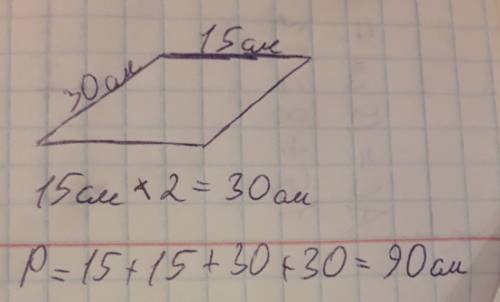 15см
30см
15см × 2 = 30см
P = 15 + 15 + 30 + 30 = 90см